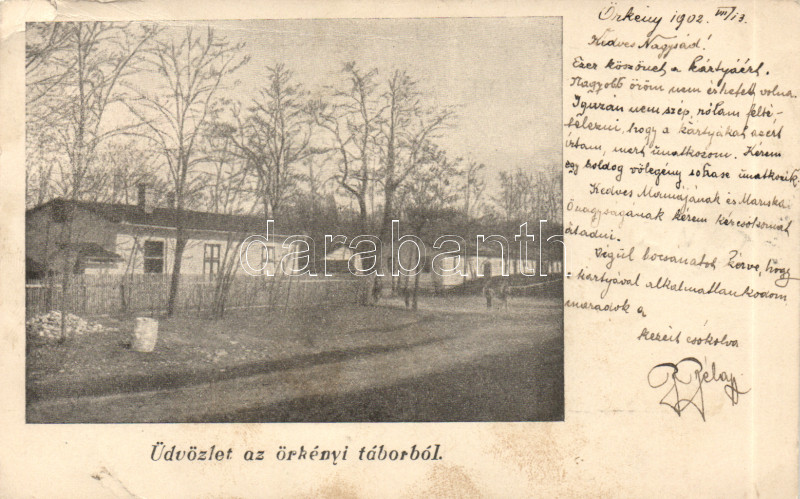 Örkény 1902. VII/13.
Kedves Nagysád!
Ezer köszönet a kártyáért.
Nagyobb öröm nem érhetett volna.
Igazán nem szép, rólam felté-
telezni, hogy a kártyákat azért
írtam, mert unatkozom. Kérem
egy boldog vőlegény sohase unatkozik.
Kedves Mamájának és Mariska
Őnagyságának kérem kézcsókomat
átadni.
Végül bocsánatot kérve, hogy
kártyával alkalmatlankodom
maradok a
kezeit csókolva
Béla
darabanth.com
Üdvözlet az örkényi táborból.